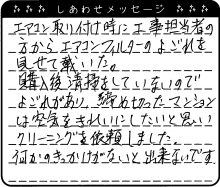 しあわせメッセージ
エアコン取り付け時に工事担当者の
方からエアコンフィルターのよごれを
見せて戴いた。
購入後清掃をしていないので
よごれがあり、締め切ったマンション
は空気をきれいにしたいと思い
クリーニングを依頼しました。
何かのきっかけがないと出来ないです